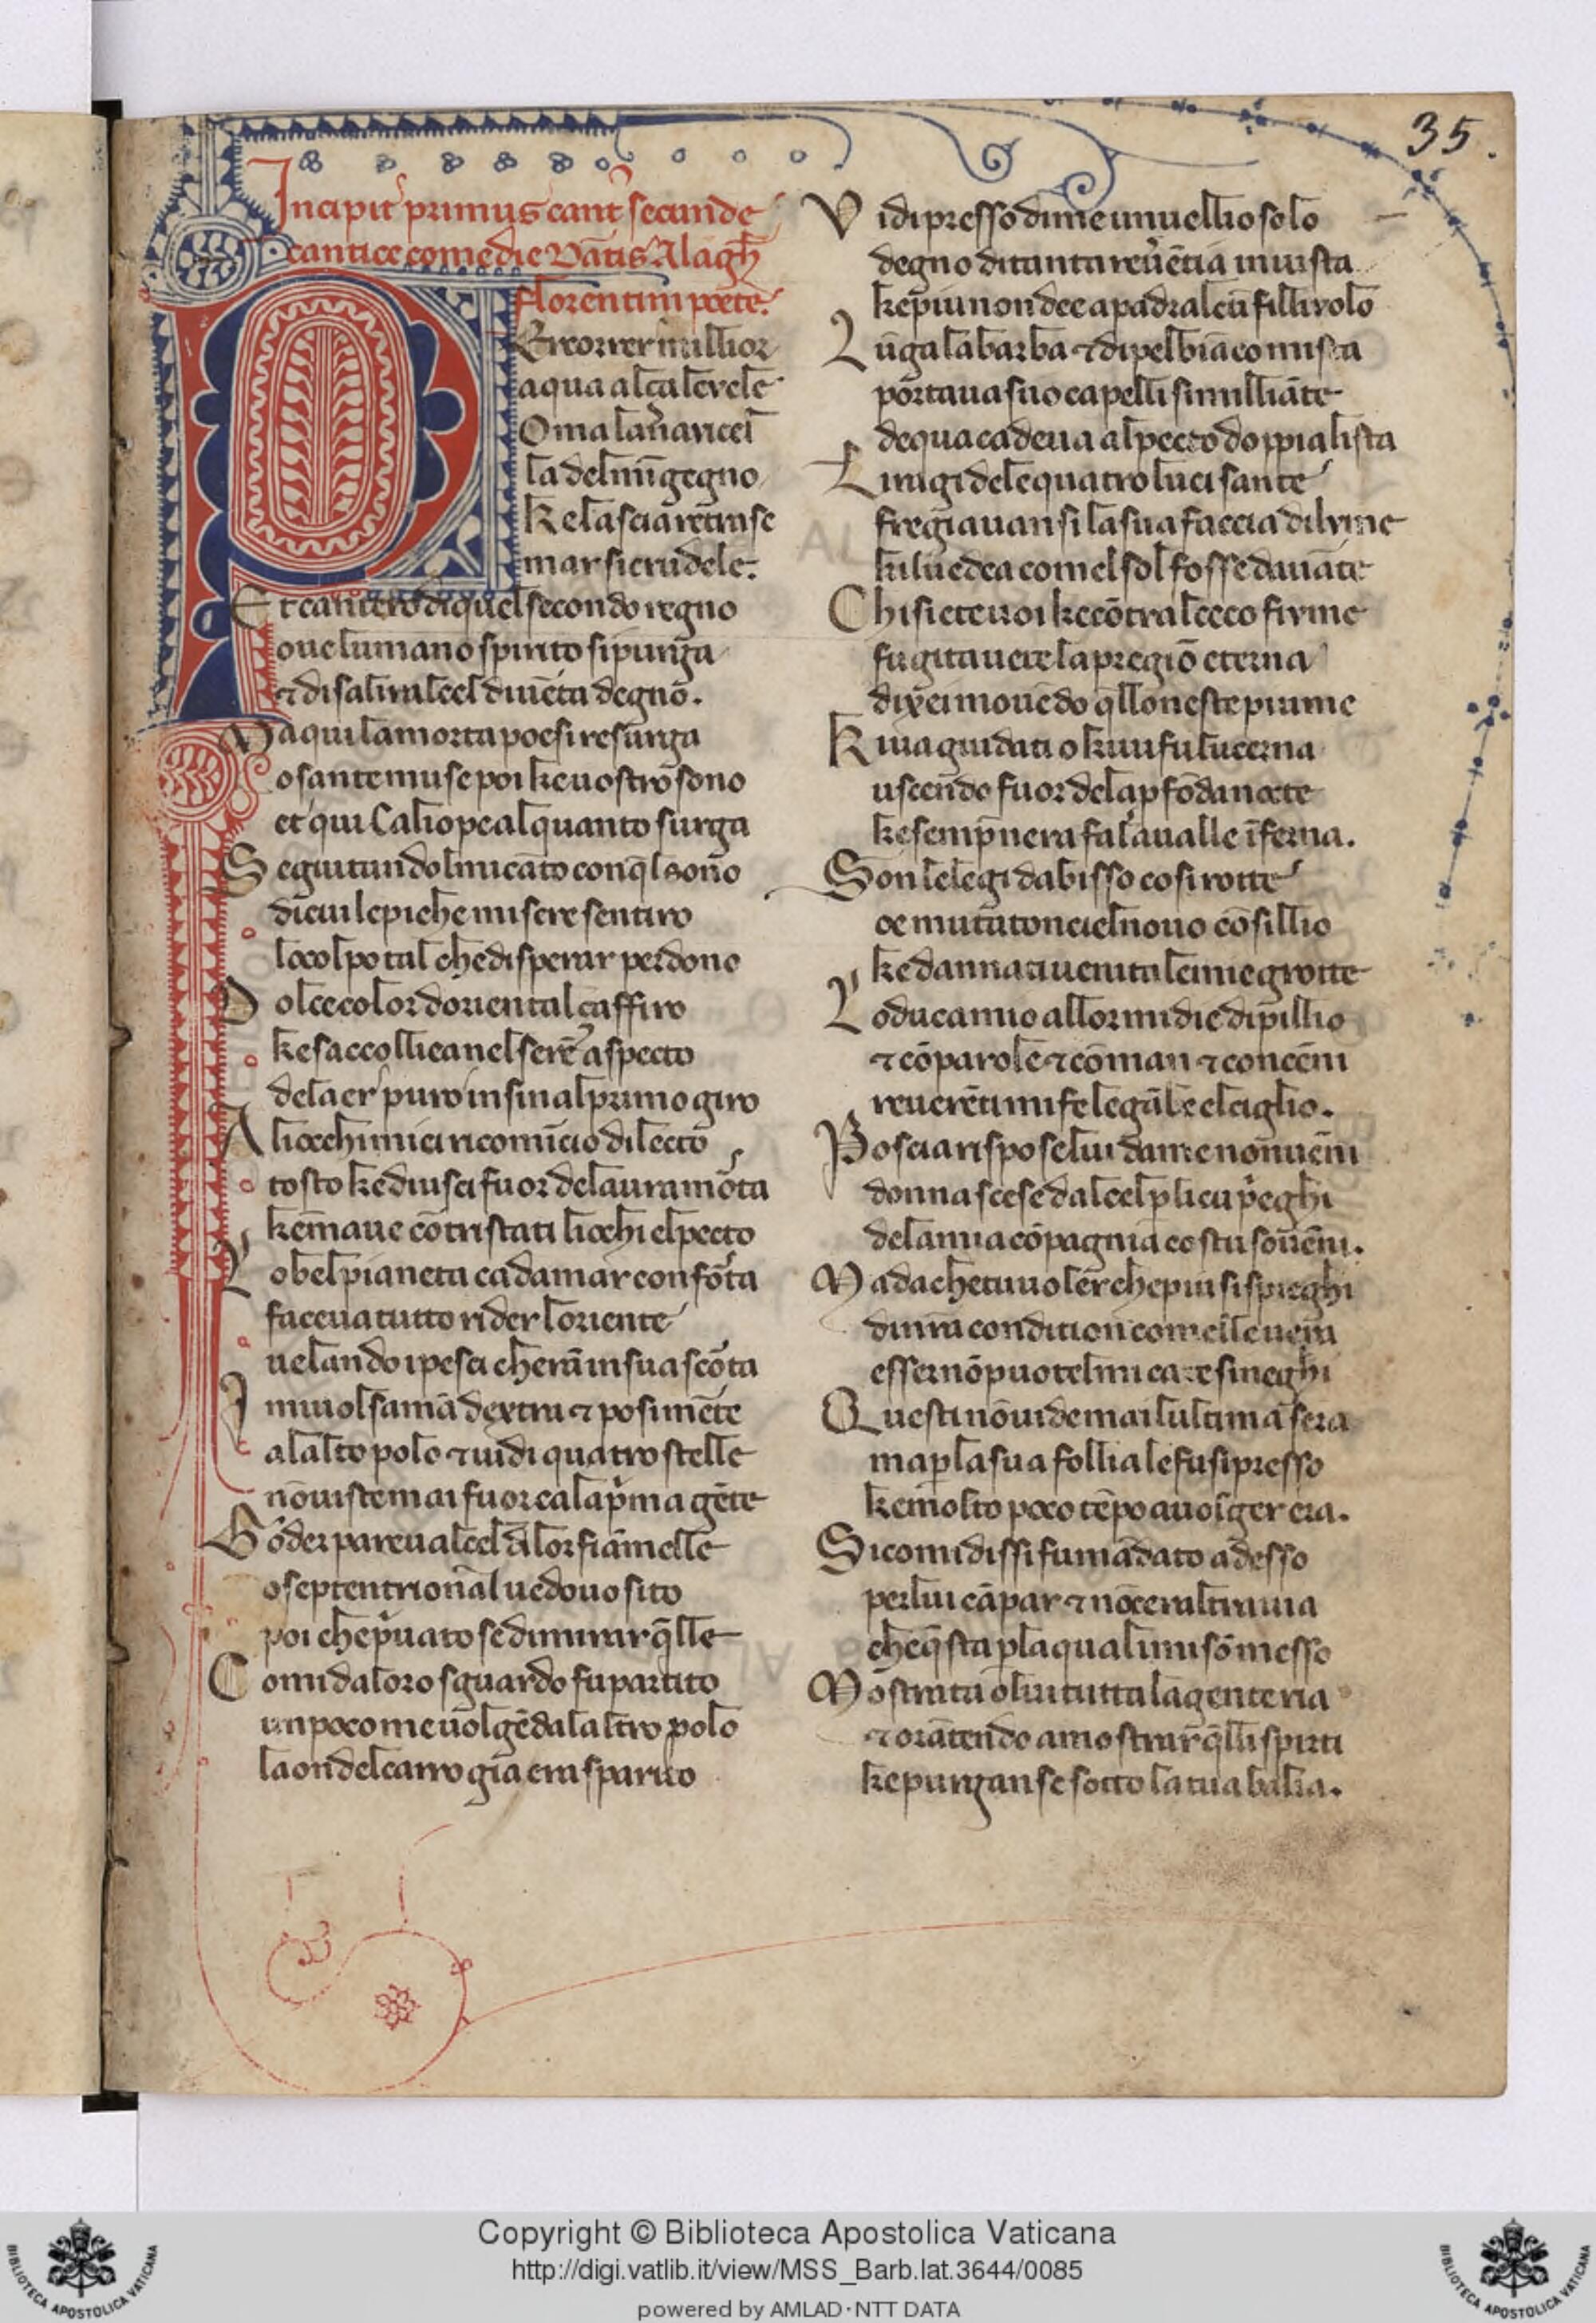 35.
Incipit primus cant' secunde
cantice comedie Dãtis Alagh̃
florentini poete.
P Er correr millior
aqua alça le vele
Omai la navicel
la del mĩ gegno
ke lascia retro se
mar si crudele.
Et cantero di quel secondo regno
oue lumano spirito si purga
⁊ di salir al cel diuẽta degno.
Ma qui la morta poesi resurga
o sante muse poi ke uostro sono
et qui Caliope alquanto surga
Seguitando l mi cãto con ql sono
di cui le piche misere sentiro
lo colpo tal che disperar perdono
Dolce color doriental çaffiro
ke saccolliea nel serẽ aspecto
de laer puro infin al primo giro
Ali occhi miei ricomĩcio dilecto
tosto kediusci fuor de laura morta
ke maue cõtristati liocchi el pecto
Lo bel pianeta ca damar conforta
faceua tutto rider loriente
uelando i pesci cherã in sua scorta
I mi uolsi a mã dextra ⁊ posi mẽte
a lalto polo ⁊ uidi quatro stelle
nõ uiste mai fuor ca la pma gẽte
Goder pareua l cel di lor fiãmelle
o septentrional uedouo sito
poi che puato se di mirar qlle
Com i da loro sguardo fu partito
un poco me uolgẽdo alaltro polo
la onde l carro gia era sparito
Vidi presso di me un uellio solo
degno di tanta reuẽtia in uista
ke piu non dee a padr alcũ filliuolo
Lũga la barba ⁊ di pel biãco mista
portaua suo capelli simillãte
de qua cadeua al pecto doppia lista
Li raigi de le quatro luci sante
fregiauan si la sua faccia di lume
kil uedea comel sol fosse dauãte
Chi siete uoi ke cõtra l ceco fiume
fugita uete la pregiõ eterna
dixei mouẽdo qllo neste piume
Ki ua guidati o ki ui fu lucerna
uscendo fuor de la pfõda nocte
ke sempr nera fa la ualle ĩferna.
Son le legi dabisso cosi rotte
oe mutato n ciel nouo cõsillio
ke dannati uenit a le mie grotte
Lo duca mio allor mi die di pillio
⁊ cõ parole ⁊ cõ man ⁊ con cẽni
reuerẽti mi fe le gãbe el ciglio.
Poscia rispose lui da me nõ uẽni
donna scese dal cel p li cu p̃eghi
de la mia cõpagnia costu souẽni.
Ma da chetuuoler che piu si spieghi
di nr̃a condition com elle uera
esser nõ puote l mi ca te si neghi
Questi nõ uide mai lultima sera
ma p la sua follia le fu si presso
ke molto poco tẽpo a uolger era.
Si com i dissi fu mãdato ad esso
per lui cãpar ⁊ nõ cera ltra uia
che qsta p la qual i mi sõ messo
Mostrata o lui tutta la gente ria
⁊ ora ĩtendo a mostrar qlli spirti
ke purgan se sotto la tua balia.
Copyright © Biblioteca Apostolica Vaticana
http://digi.vatlib.it/view/MSS_Barb.lat.3644/0085
powered by AMLAD·NTT DATA
BIBLIOTECA APOSTOLICA VATICANA
BIBLIOTECA APOSTOLICA VATICANA